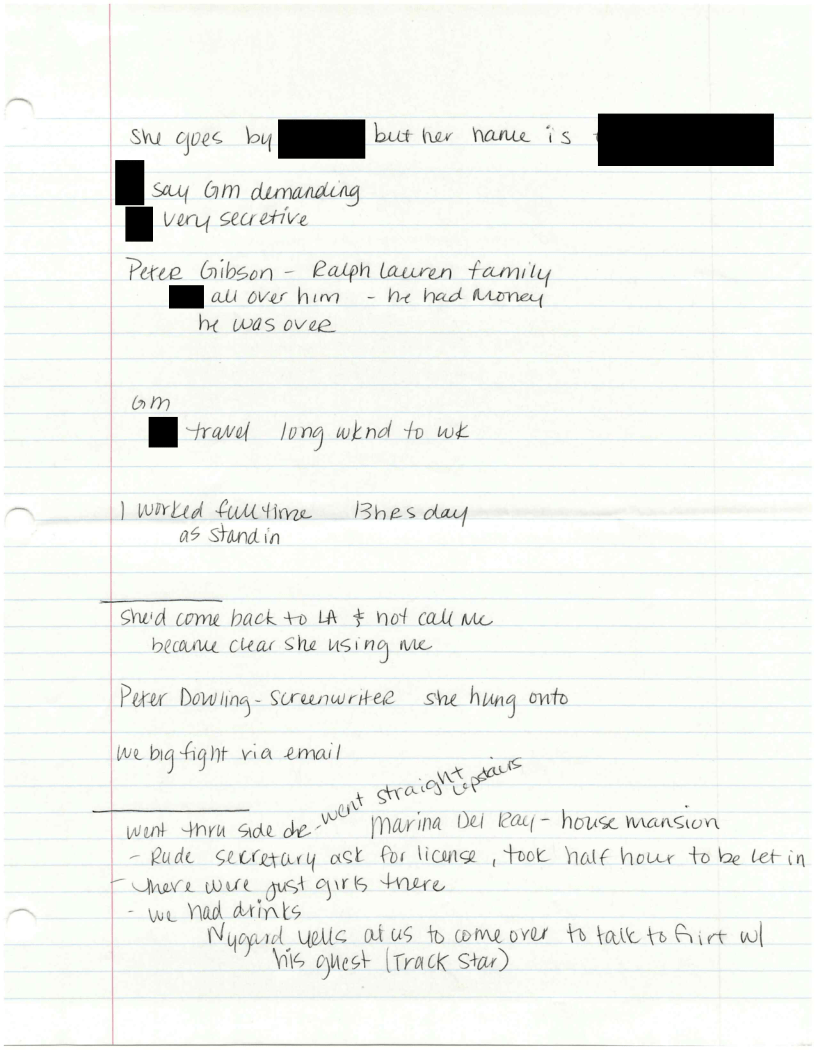 she goes by but her name is
say GM demanding
very secretive
Peter Gibson - Ralph Lauren family
all over him - he had money
he was over
GM
travel long wknd to wk
I worked full time 13 hrs day
as stand in
She'd come back to LA & not call me
became clear she using me
Peter Dowling - Screenwriter she hung onto
we big fight via email
went straight upstairs
went thru side dr - Marina Del Ray - house mansion
- Rude secretary ask for license, took half hour to be let in
- there were just girls there
- we had drinks
Nygard yells at us to come over to talk to flirt w/
his guest (Track Star)